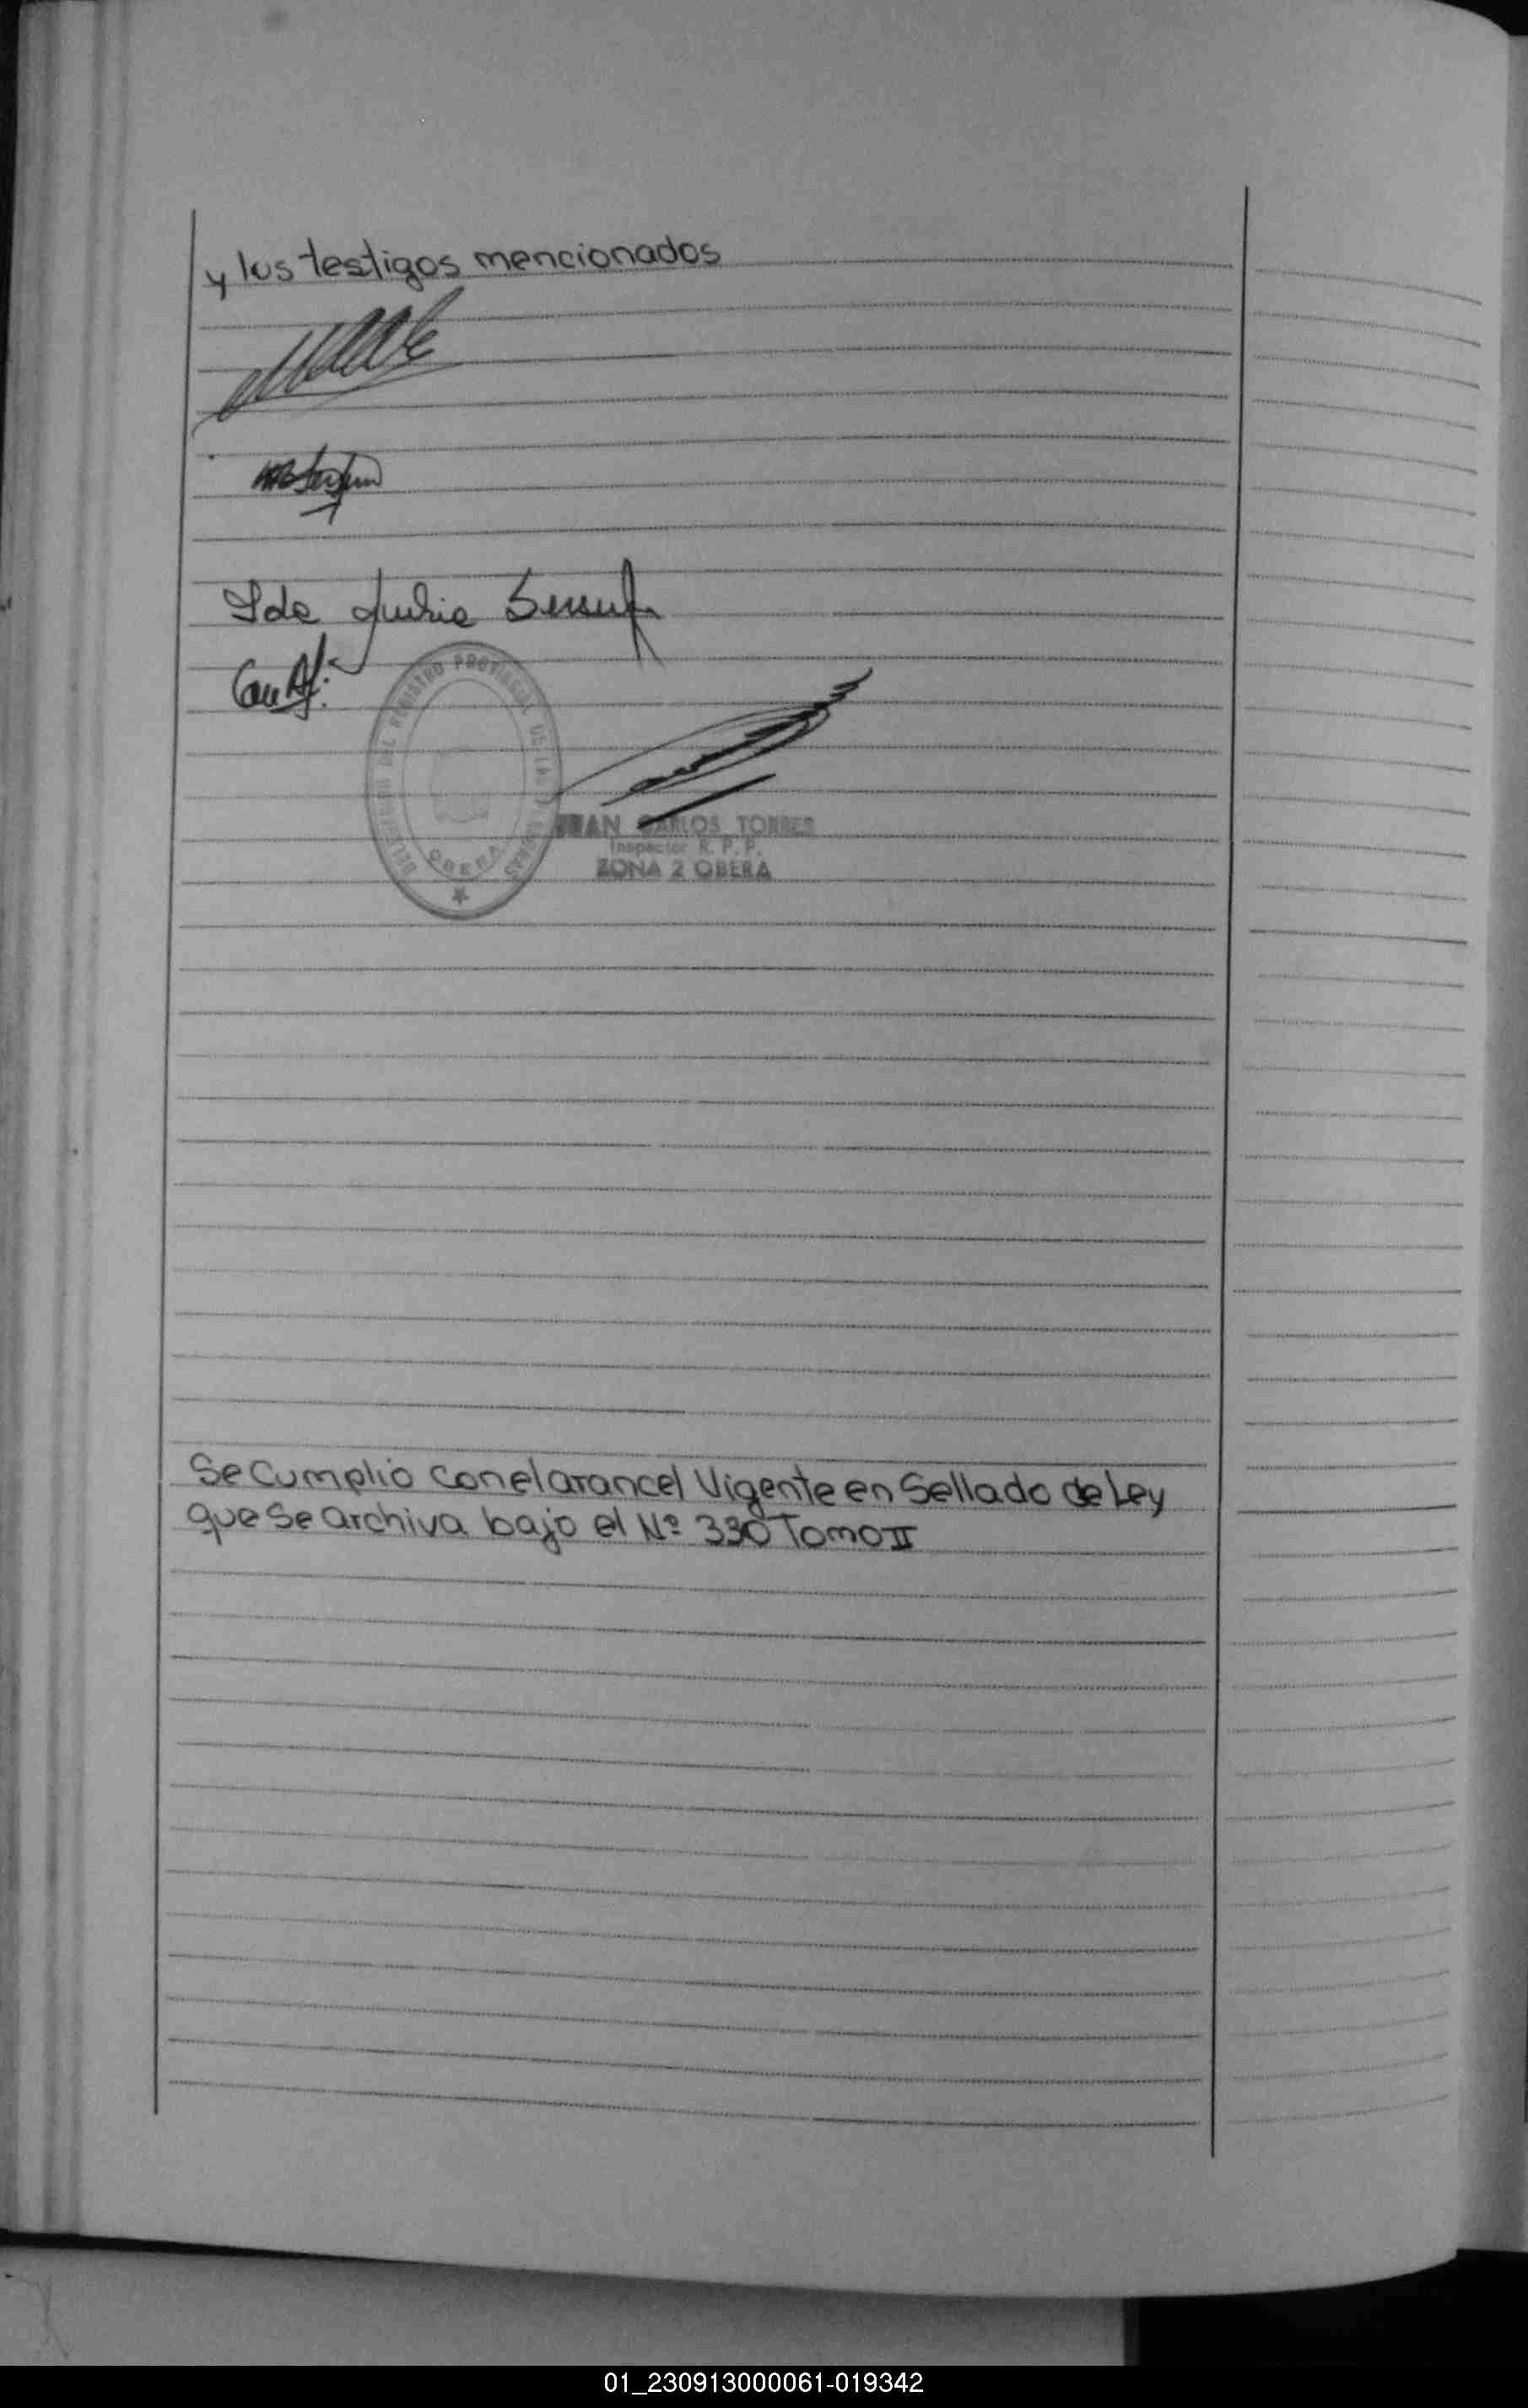 y los testigos mencionados
Ida
DELEGACION DEL REGISTRO PROVINCIAL DE LAS PERSONAS
OBERA
JUAN CARLOS TORRES
Inspector R. P. P.
ZONA 2 OBERA
Se Cumplio con el arancel Vigente en Sellado de Ley
que se archiva bajo el Nº 330 Tomo II
01_230913000061-019342